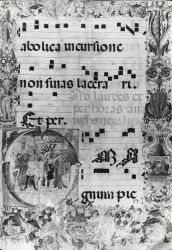 abolica incursione
non sinas lacera ri.
Et per.
gnum pic